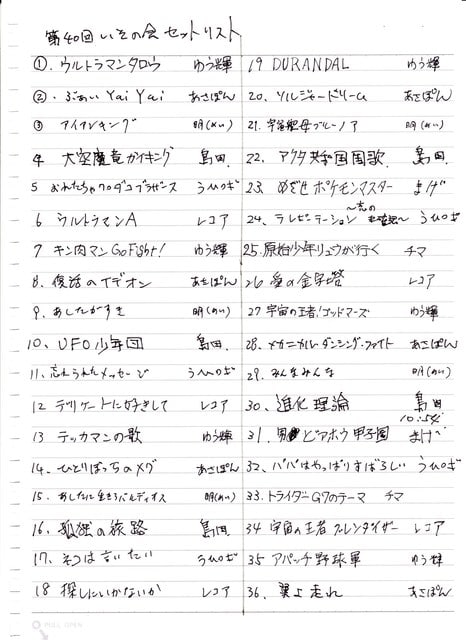 第40回 いその会 セットリスト
①. ウルトラマンタロウ ゆう輝
②. ぶぁいYaiYai あさぽん
③ アイアンキング 明(めい)
4 大空魔竜ガイキング 島田.
5 おれたちゃ7のダコブラザーズ うひのぎ
6 ウルトラマンA レコア
7 キン肉マンGoFight! ゆう輝
8. 復活のイデオン あさぽん
9. あしたがすき 明(めい)
10. UFO少年団 島田.
11. 忘れられたメッセージ うひのぎ
12 デリケートに好きして レコア
13 テッカマンの歌 ゆう輝
14. ひとりぼっちのメグ あさぽん
15. あしたに生きろバルディオス 明(めい)
16. 孤独の旅路 島田.
17. ネコは言いたい うひのぎ
18 探しにいかないか レコア
19 DURANDAL ゆう輝
20. ソルジャードリーム あさぽん
21. 宇宙船母ブルーノア 明(めい)
22. アクタ共和国国歌 島田
23. めざせポケモンマスター まげ
24. テレポーテーション〜恋の未確認〜 うひのぎ
25. 原始少年リュウが行く チマ
26 愛の金字塔 レコア
27 宇宙の王者!ゴッドマーズ ゆう輝
28. メカニカルダンシングファイト あさぽん
29. みんなみんな 明(めい)
30. 進化理論 島田
10:54
31. 男どアホウ甲子園 まげ
32. パパはやっぱりすばろしい うひのぎ
33. トライダーG7のテーマ チマ
34 宇宙の王者グレンダイザー レコア
35 アパッチ野球軍 ゆう輝
36. 翼よ走れ あさぽん